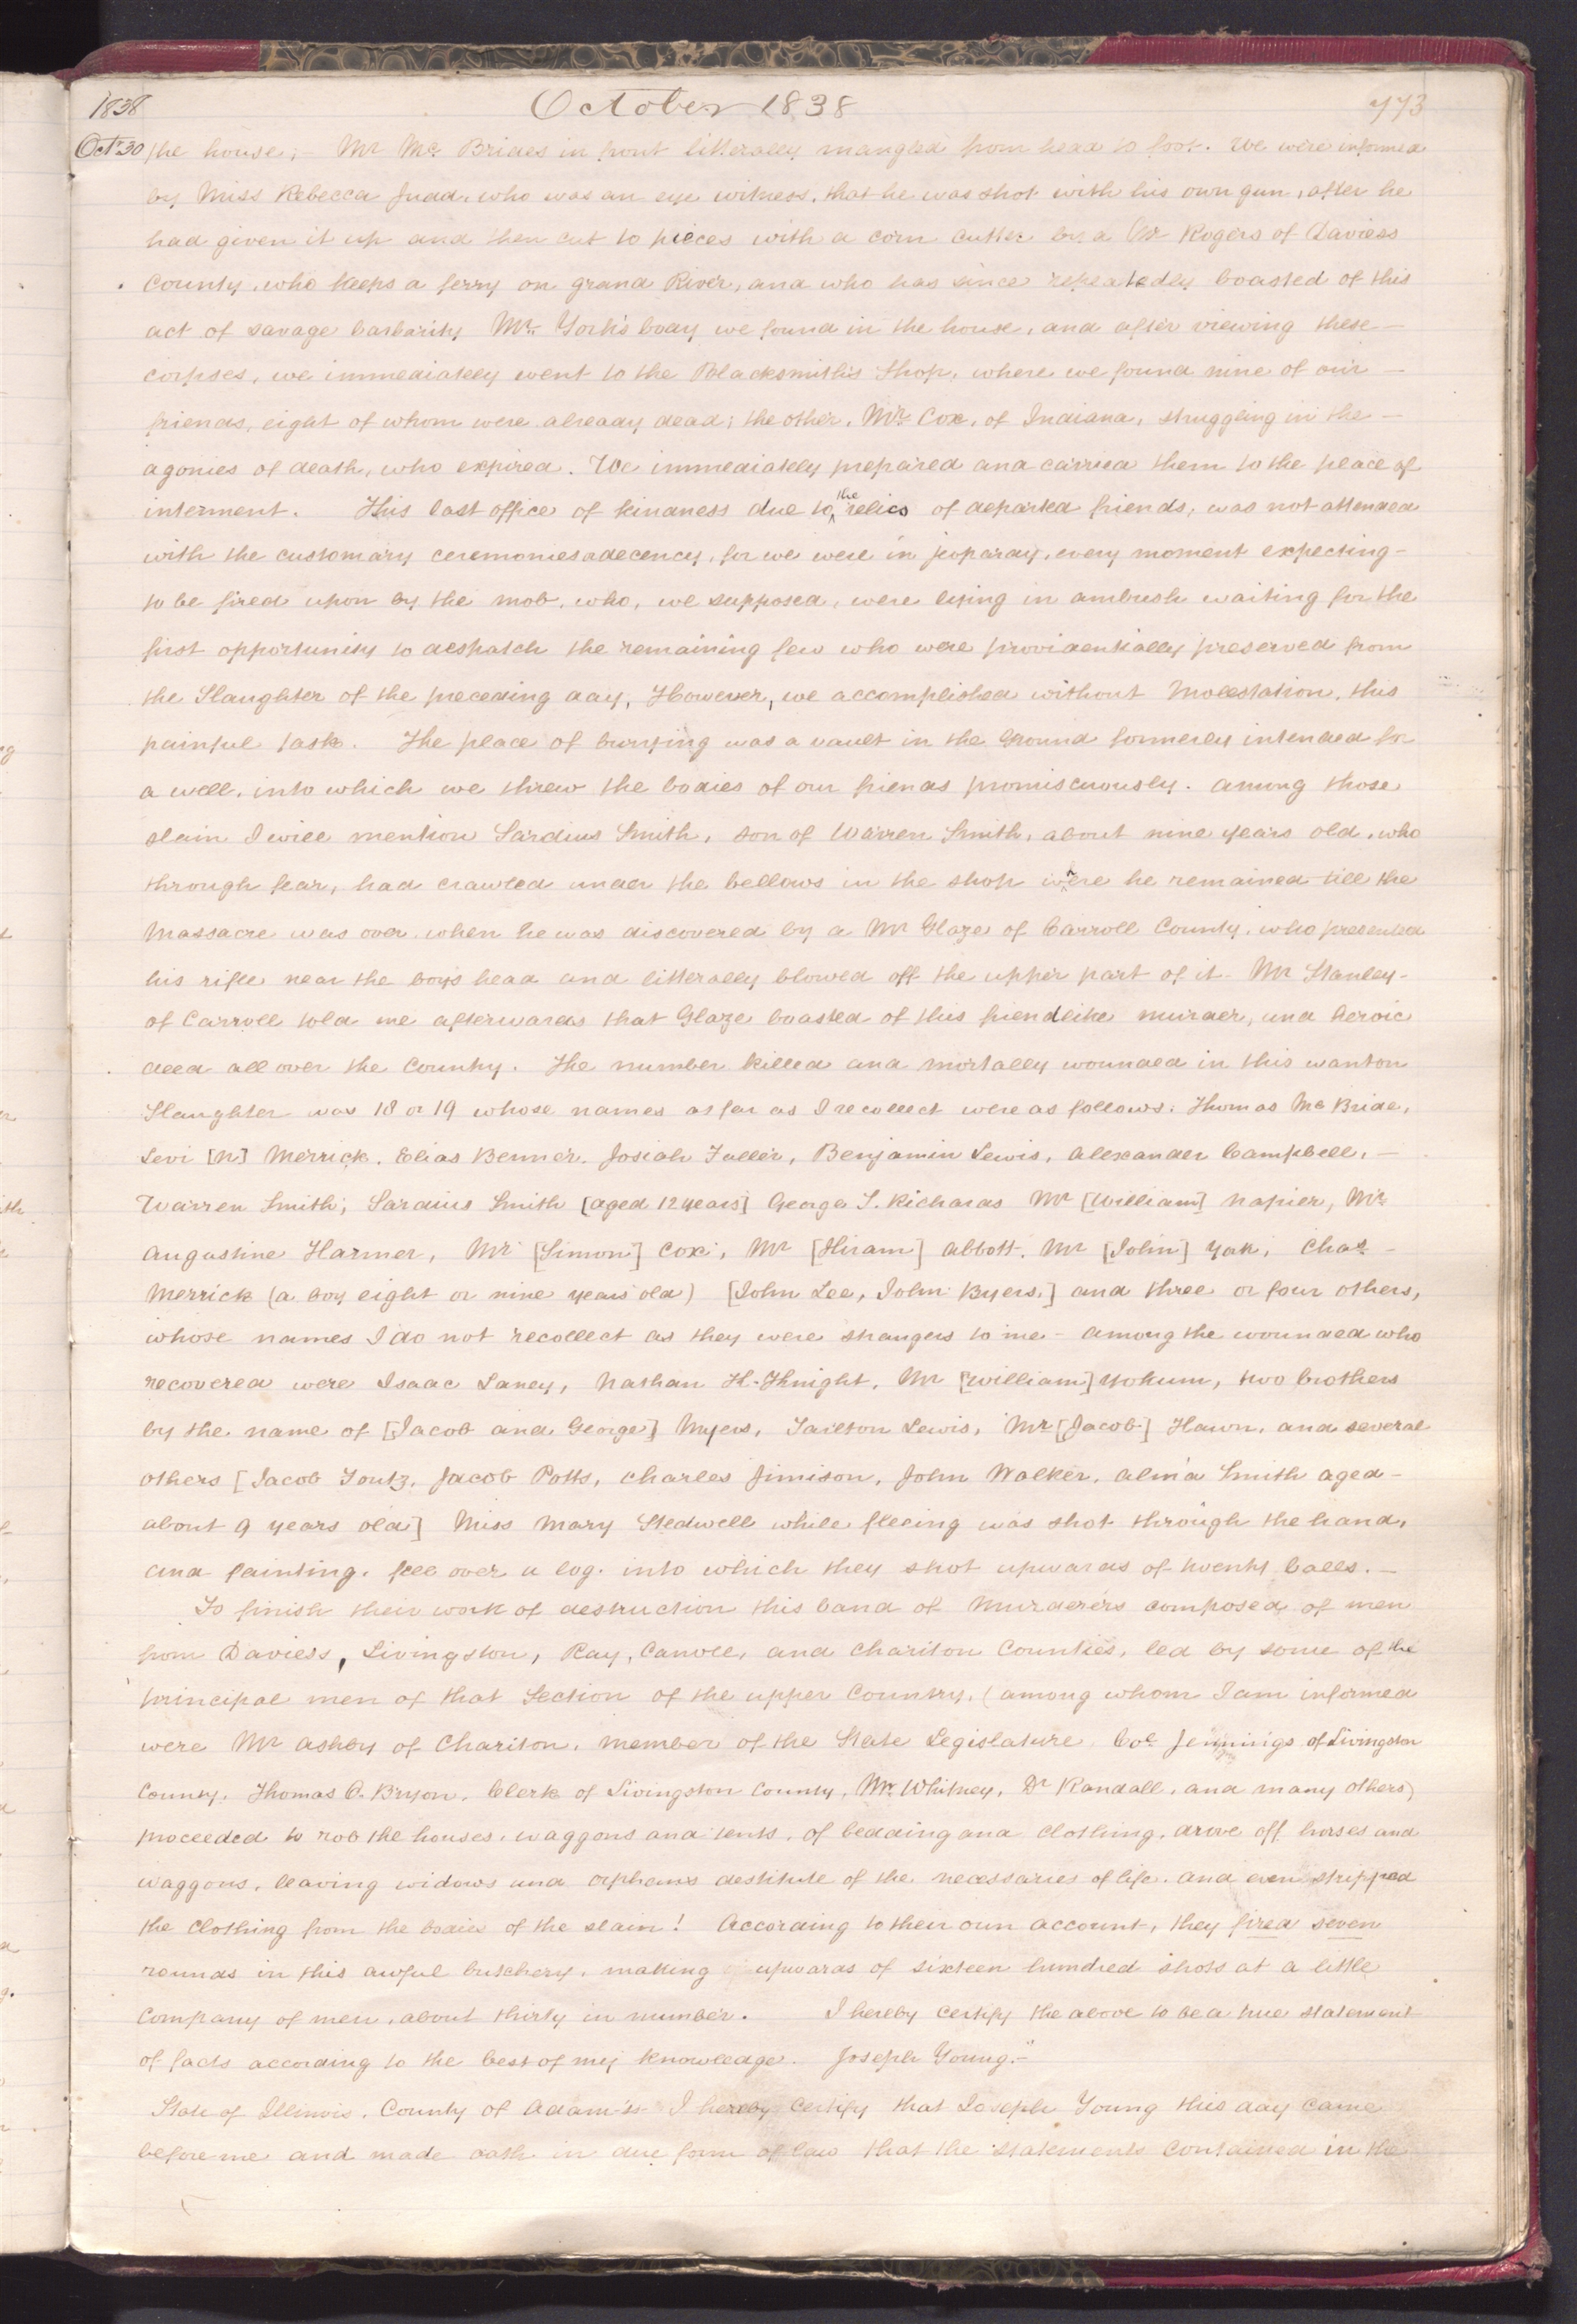 1838 October 1838 773
Oct 30 the house; — Mr. Mc. Brides in front litterally mangled from head to foot. We were informed
by Miss Rebecca Judd, who was an eye witness, that he was shot with his own gun, after he
had given it up and then cut to pieces with a corn cutter by a Mr Rogers of Daviess
County, who keeps a ferry on grand River, and who has since repeatedly boasted of this
act of savage barbarity Mr. York's body we found in the house, and after viewing these —
corpses, we immediately went to the Blacksmith's Shop, where we found nine of our —
friends, eight of whom were already dead; the other, Mr. Cox, of Indiana, struggling in the —
agonies of death, who expired. We immediately prepared and carried them to the place of
interment. This last office of kindness due to the relics of departed friends, was not attended
with the customary ceremonies decency, for we were in jeopardy, every moment expecting —
to be fired upon by the mob, who, we supposed, were lying in ambush waiting for the
first opportunity to despatch the remaining few who were providentially preserved from
the Slaughter of the preceding day, However, we accomplished without Molestation, this
painful task. The place of burying was a vault in the Ground formerly intended for
a well, into which we threw the bodies of our friends promiscuously. among those
slain I will mention Sardius Smith, son of Warren Smith, about nine years old, who
through fear, had crawled under the bellows in the shop where he remained till the
Massacre was over, when he was discovered by a Mr Glaze of Carroll County, who presented
his rifle near the boy's head and litterally blowed off the upper part of it. Mr Stanley —
of Carroll told me afterwards that Glaze boasted of this fiendlike murder, and heroic
deed all over the Country. The number killed and mortally wounded in this wanton
Slaughter was 18 or 19 whose names as far as I recollect were as follows: Thomas Mc Bride,
Levi [N] Merrick, Elias Benner, Josiah Fuller, Benjamin Lewis, Alexander Campbell, —
Warren Smith; Sardius Smith [aged 12 years] George S. Richards Mr [William] Napier, Mr.
Augustine Harmer, Mr [Simon] Cox, Mr [Hiram] Abbott, Mr [John] York, Chas —
Merrick (a boy eight or nine years old) [John Lee, John Byers,] and three or four others,
whose names I do not recollect as they were strangers to me — among the wounded who
recovered were Isaac Laney, Nathan K. Knight, Mr [William] Yokum, two brothers
by the name of [Jacob and George] Myers, Tarlton Lewis, Mr [Jacob] Hawn, and several
others [Jacob Foutz, Jacob Potts, Charles Jimison, John Walker, Alma Smith aged —
about 9 years old] Miss Mary Stedwell while fleeing was shot through the hand,
and fainting, fell over a log, into which they shot upwards of twenty balls. —
To finish their work of destruction this band of Murderers composed of men
from Daviess, Livingston, Ray, Carroll, and Chariton Counties, led by some of the
principal men of that Section of the upper Country, (among whom I am informed
were Mr Ashby of Chariton, member of the State Legislature, Col Jennings of Livingston
County, Thomas O. Bryon, Clerk of Livingston County, Mr. Whitney, Dr Randall, and many others)
proceeded to rob the houses, waggons and tents, of bedding and Clothing, drove off horses and
waggons, leaving widows and orphans destitute of the necessaries of life, and even stripped
the Clothing from the bodies of the slain! According to their own account, they fired seven
rounds in this awful butchery, making upwards of sixteen hundred shots at a little
Company of men, about thirty in number. I hereby certify the above to be a true statement
of facts according to the best of my knowledge. Joseph Young."
State of Illinois, County of Adams ss I hereby Certify that Joseph Young this day came
before me and made oath in due form of law that the statements contained in the